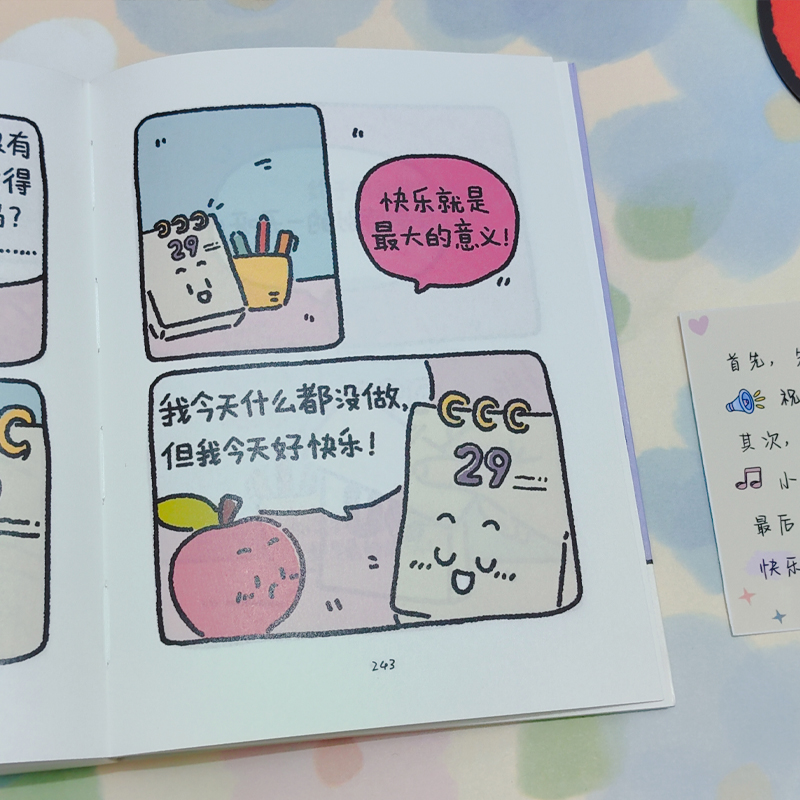 有
得
吗?
……
29
快乐就是
最大的意义!
我今天什么都没做,
但我今天好快乐!
29
243
首先,
祝
其次,
小
最后
快乐